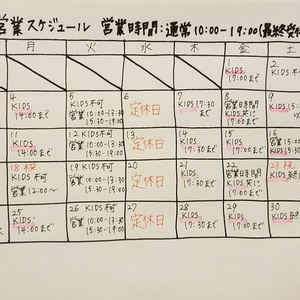 営業スケジュール 営業時間:通常10:00-19:00(最終受付
月 火 水 木 金 土
1 KIDS 17:00まで
2 KIDS
4 KIDS 14:00まで
5 KIDS不可 営業10:00-13:30 15:30-19:00
6 定休日
7 KIDS 17:30まで
8 営業時間 KIDS共に 17:00まで
9 KIDS 15:
11 KIDS 14:00まで
12 KIDS不可 営業10:00-13:30 15:30-19:00
13 定休日
14 KIDS 17:30まで
15 KIDS 17:00まで
16 営業 KIDS 15:30
18 祝 KIDS不可 営業12:00〜
19 KIDS不可 営業10:00-13:30 15:30-19:00
20 定休日
21 KIDS 17:30まで
22 営業時間 KIDS共に 17:00まで
23 祝 KIDS 終
25 KIDS 14:00まで
26 KIDS不可 営業10:00-13:30 15:30-19:00
27 定休日
28 KIDS 17:30まで
29 KIDS 17:00まで
30 KIDS 終